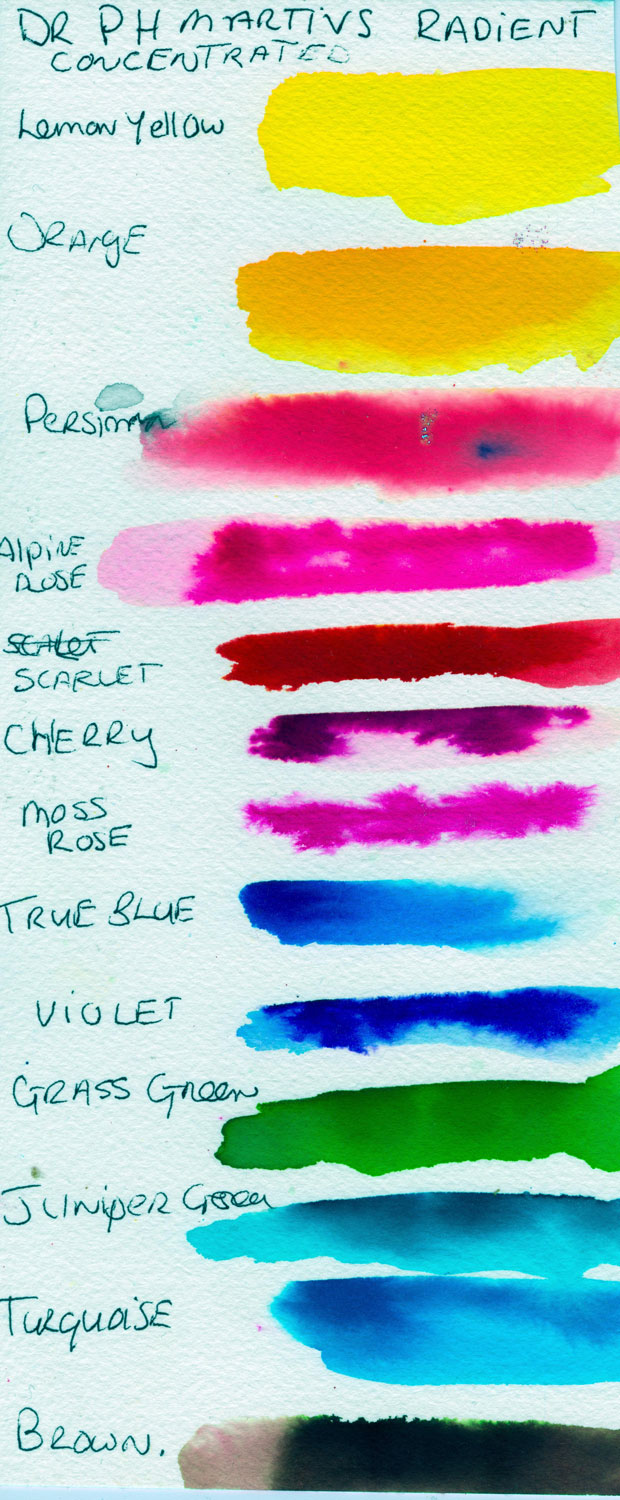 DR PH MARTINS RADIENT
CONCENTRATED
Lemon Yellow
ORANGE
Alpine
ROSE
SCARLET
CHERRY
MOSS
ROSE
TRUE BLUE
VIOLET
GRASS Green
JUNIPER Green
Turquoise
BROWN.